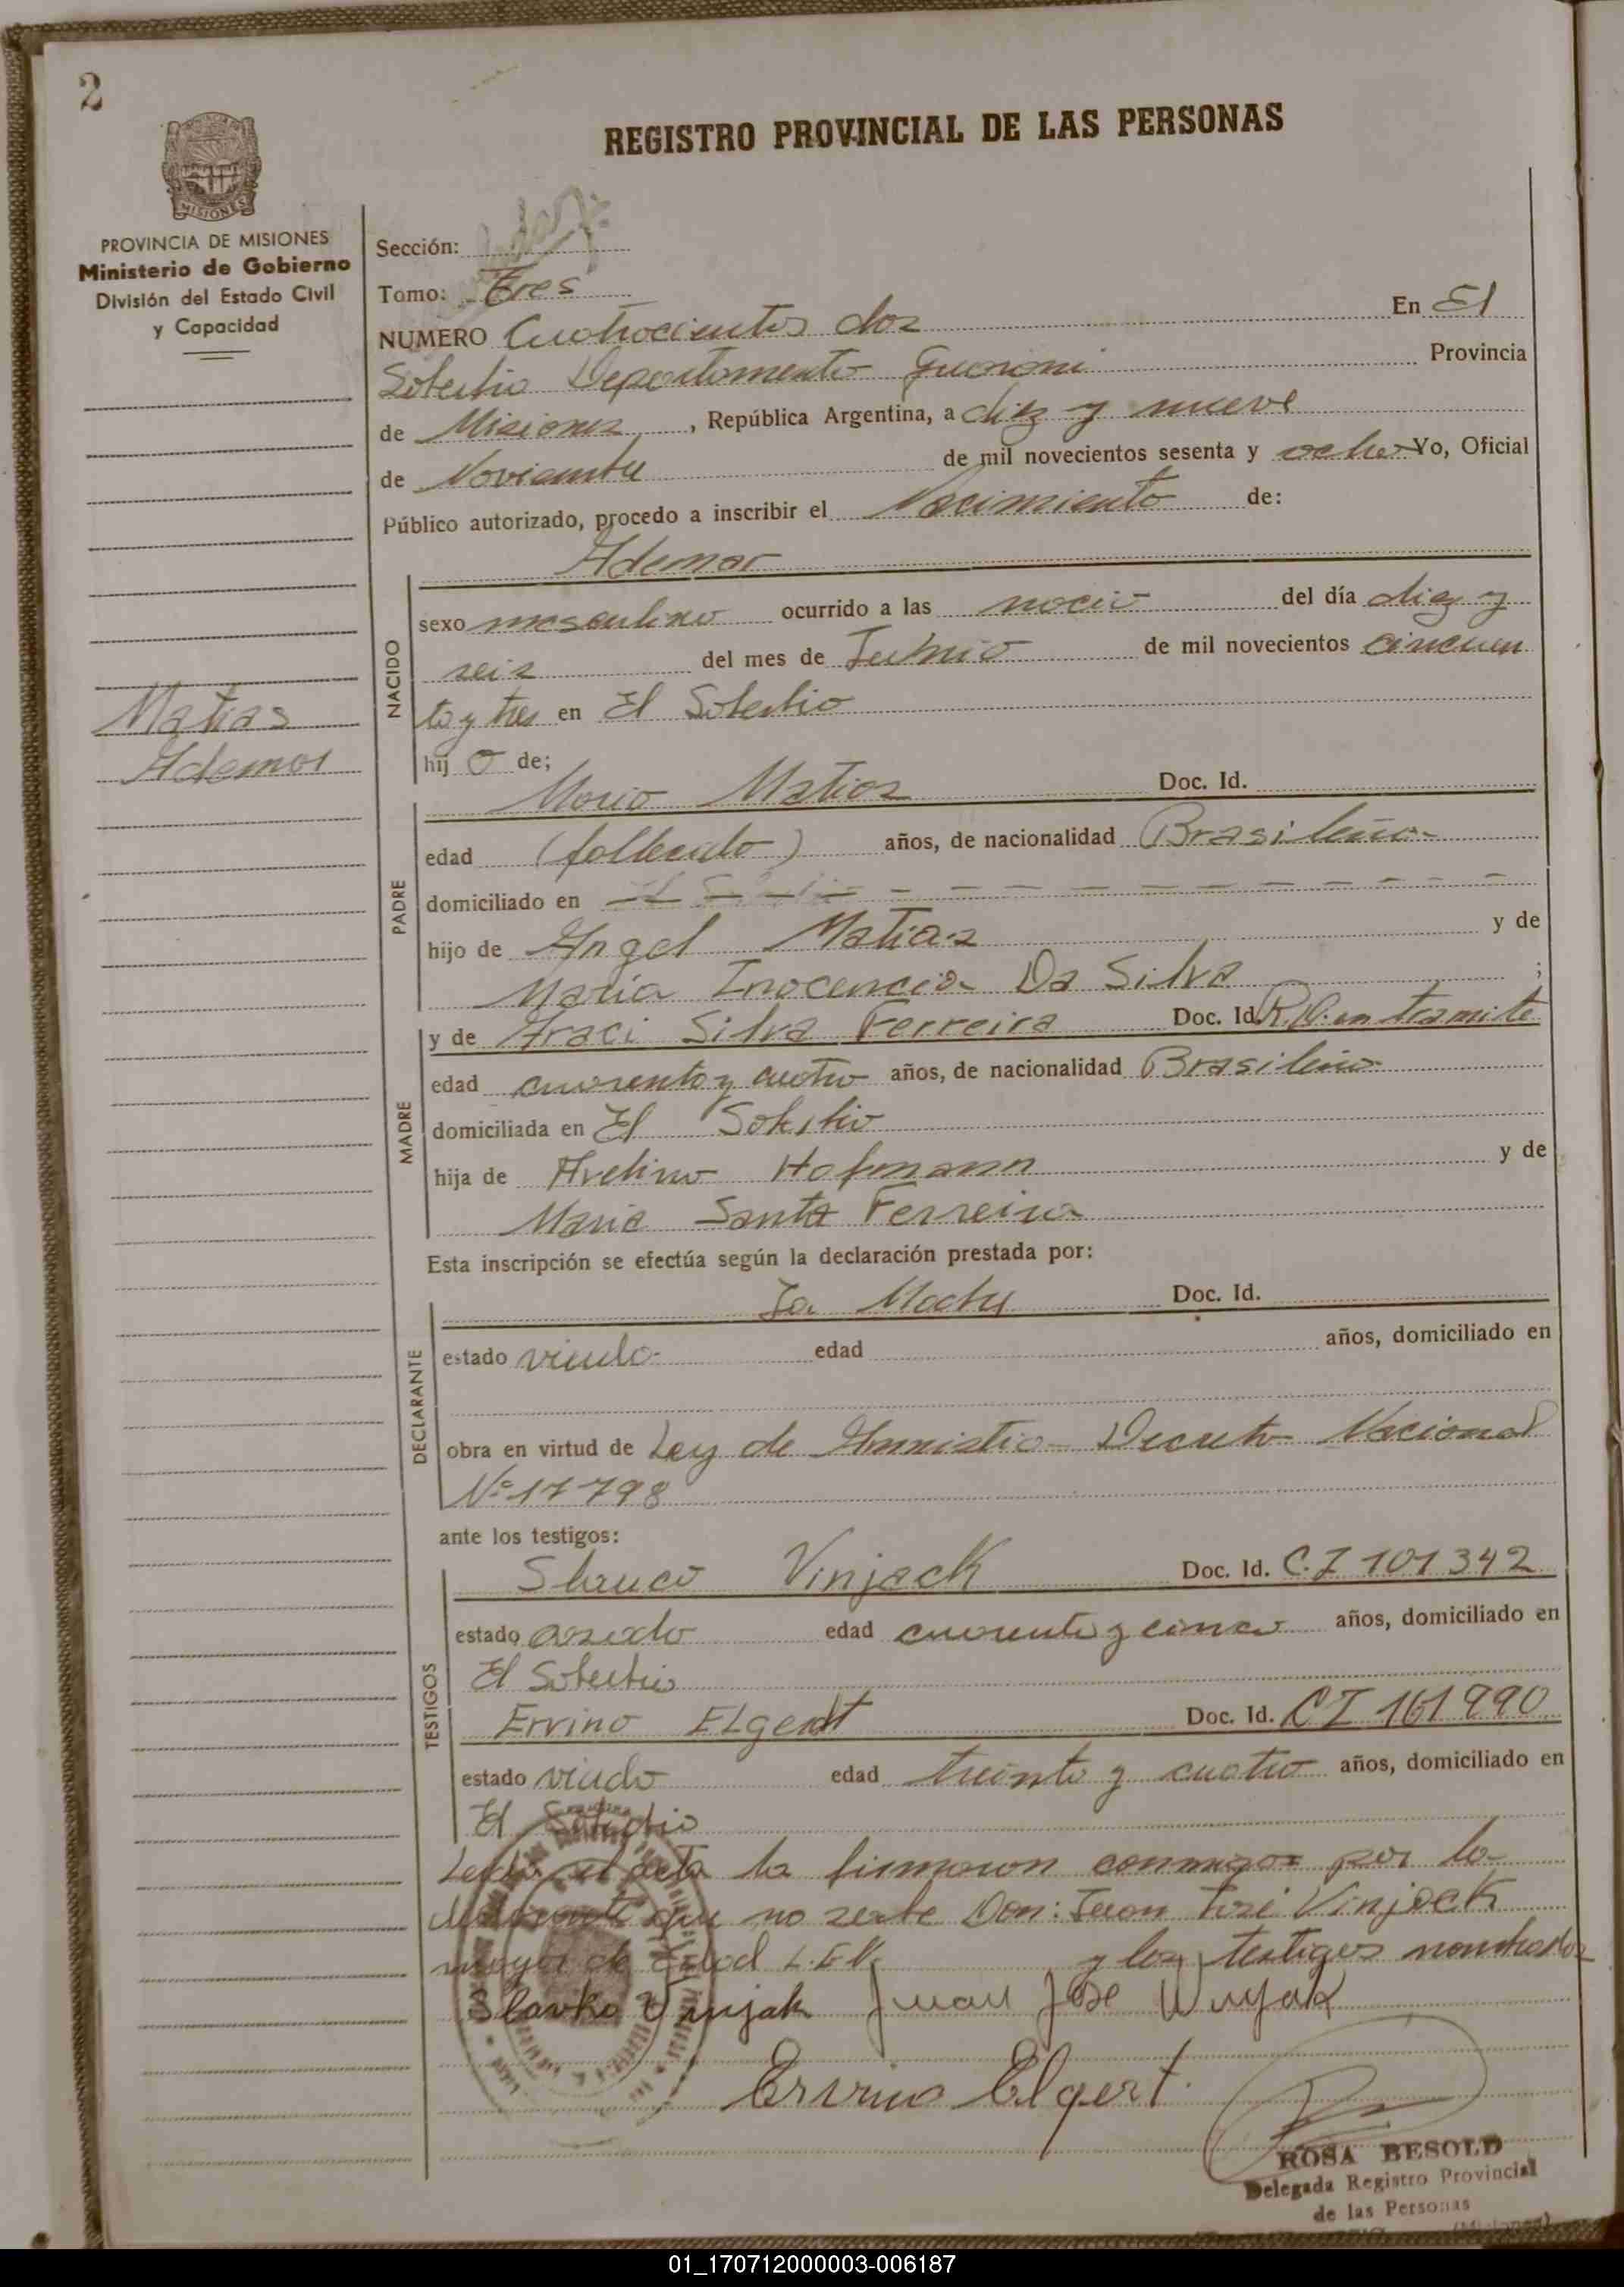 2
REGISTRO PROVINCIAL DE LAS PERSONAS
MISIONES
PROVINCIA DE MISIONES
Ministerio de Gobierno
División del Estado Civil
y Capacidad
Matias
Ademar
Sección:
Tomo: Tres
NUMERO Cuatrocientos dos En El
Soberbio Departamento Guarani Provincia
de Misiones, República Argentina, a diez y nueve
de Noviembre de mil novecientos sesenta y ocho Yo, Oficial
Público autorizado, procedo a inscribir el Nacimiento de:
Ademar
NACIDO
sexo masculino ocurrido a las del día diez y
seis del mes de Junio de mil novecientos cincuen
ta y tres en El Soberbio
hij o de;
PADRE
Mario Matias Doc. Id.
edad (fallecido) años, de nacionalidad Brasileña
domiciliado en
hijo de Angel Matias y de
Maria Inocencia Da Silva ;
MADRE
y de Araci Silva Ferreira Doc. Id. en tramite
edad cuarenta y cuatro años, de nacionalidad Brasileña
domiciliada en El Soberbio
hija de Avelino Hofmann y de
Maria Santa Ferreira
Esta inscripción se efectúa según la declaración prestada por:
DECLARANTE
La Madre Doc. Id.
estado viuda edad años, domiciliado en
obra en virtud de Ley de Amnistia Decreto Nacional
Nº 17798
ante los testigos:
TESTIGOS
Slauco Vinjack Doc. Id. C.I 101342
estado casado edad cuarenta y cinco años, domiciliado en
El Soberbio
Ervino ELgert Doc. Id. CI 161990
estado viudo edad treinta y cuatro años, domiciliado en
El Soberbio
Leida el acta la firmaron conmigo por la
declarante que no sabe Don: Juan José Vinjack
mayor de Edad L.E Nº y los testigos nombrados
Slavko Vinjak Juan José Vinjak
Ervino Elgert
ROSA BESOLD
Delegada Registro Provincial
de las Personas
(Misiones)
01_170712000003-006187